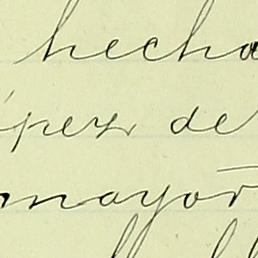 hecho
ípez de
mayor